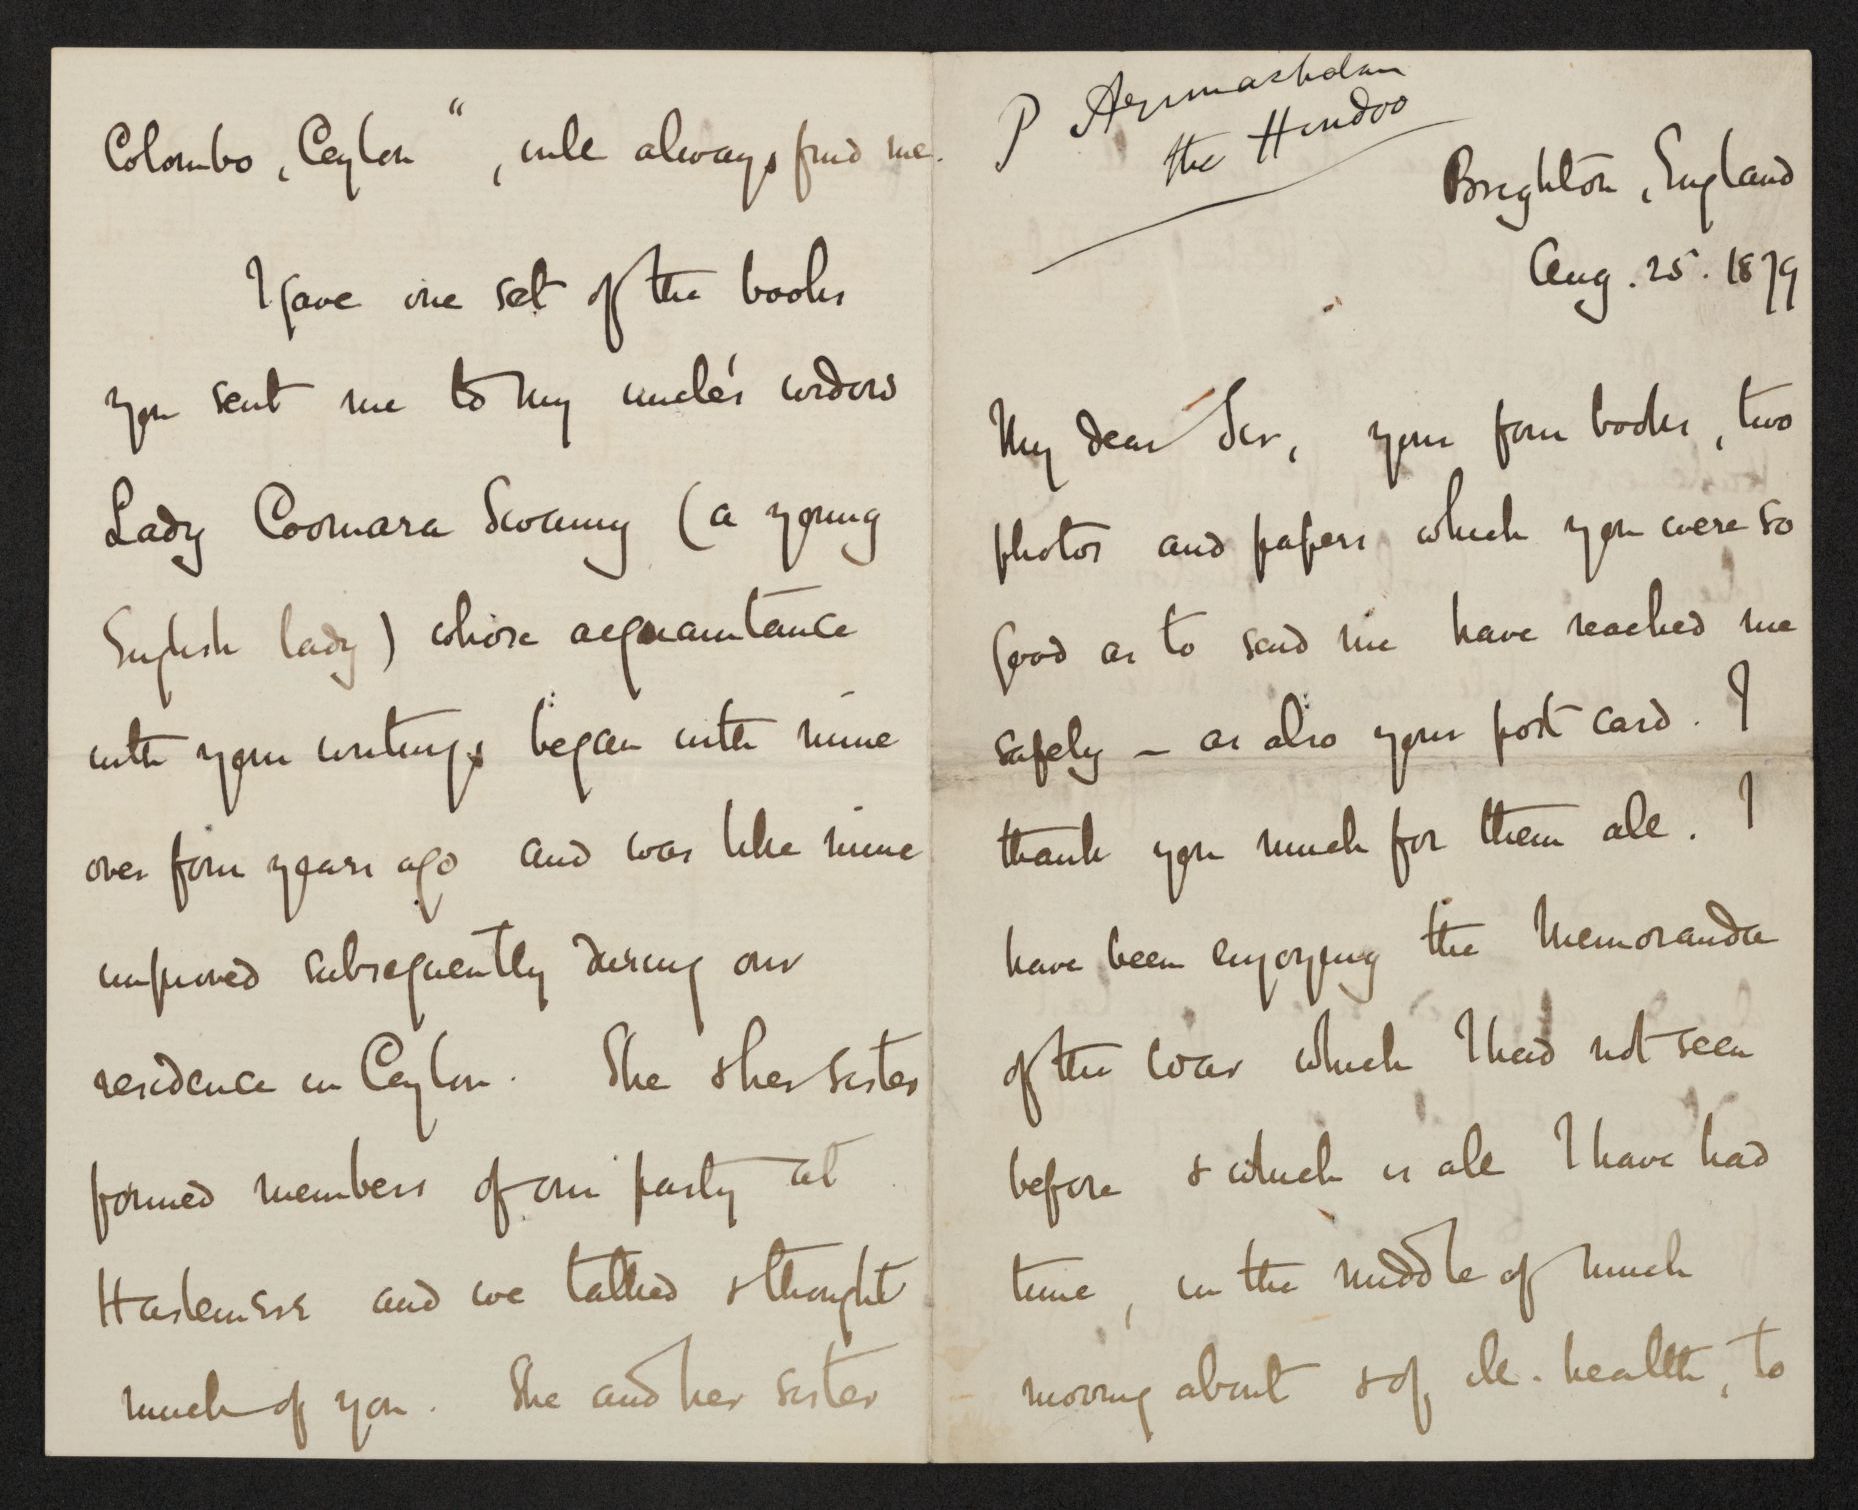 P Arunachalam
the Hindoo
Brighton, England
Aug. 25. 1879
My dear Sir, your four books, two
photos and papers which you were so
good as to send me have reached me
safely – as also your post card. I
thank you much for them all. I
have been enjoying the Memoranda
of the War which I had not seen
before & which is all I have had
time, in the middle of much
moving about & of ill-health, to
Colombo, Ceylon", will always find me.
I gave one set of the books
you sent me to my uncle's widow
Lady Coomara Swamy (a young
English lady) whose acquaintance
with your writings began with mine
over four years ago and was like mine
improved subsequently during our
residence in Ceylon. She & her sister
formed members of our party at
Haslemere and we talked & thought
much of you. She and her sister